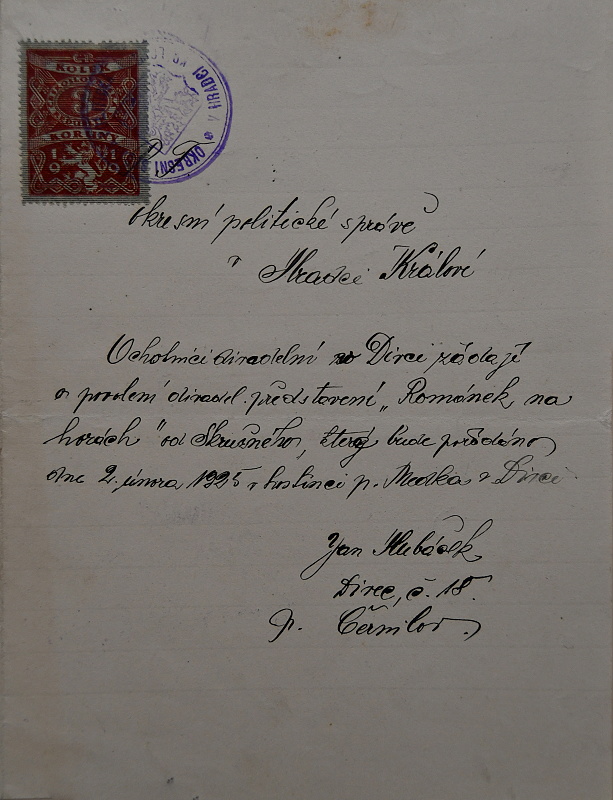 KOLEK
3
KORUNY
1919
OKRESNÍ
HRADCI KR
Okresní politické správě
v Hradci Králové
Ochotníci divadelní v Divci žádají
o povolení divadel. představení „Románek na
horách" od Skružného, který bude pořádáno
dne 2. února 1925 v hostinci p. Macka v Divci
Jan Hubáček
Divec, č. 18.
p. Černilov.